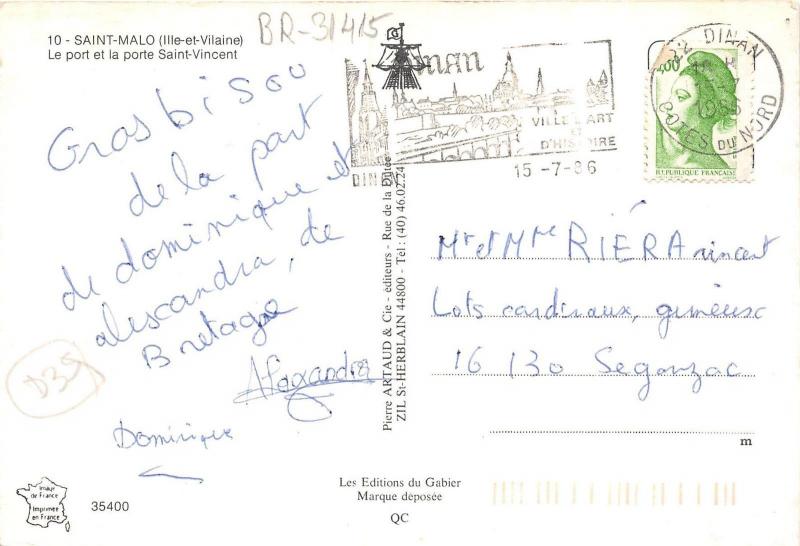 10 - SAINT-MALO (Ille-et-Vilaine)
Le port et la porte Saint-Vincent
BR-31415
Gros bisou
de la part
de dominique et
alescandra, de
Bretagne
Alexandra
Dominique
D35
DINAN
VILLE D'ART
ET
D'HISTOIRE
DINAN
15 -7-86
22 DINAN
COTES DU NORD
REPUBLIQUE FRANÇAISE
Pierre ARTAUD & Cie - éditeurs - Rue de la Dutée
ZIL St-HERBLAIN 44800 - Tel : (40) 46.02.24
Mr et Mme RIÉRA vincent
Lots cardinaux, gimeux
16 130 Segonzac
m
Image
de France
Imprimée
en France
35400
Les Editions du Gabier
Marque déposée
QC